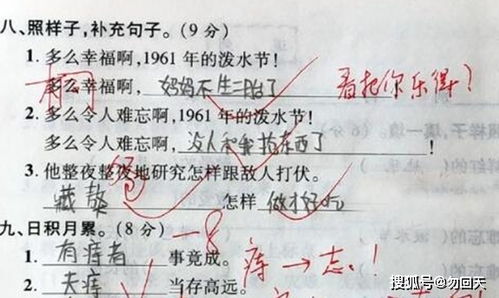 八、照样子，补充句子。(9 分)
1. 多么幸福啊，1961 年的泼水节！
多么幸福啊，妈妈不生二胎了 看把你乐得？
2. 多么令人难忘啊，1961 年的泼水节！
多么令人难忘啊，没人和我抢东西了！
3. 他整夜整夜地研究怎样跟敌人打仗。
藏獒 怎样 做才好吃
九、日积月累。(8 分) -8
1. 有痔者 事竟成。 痔→志！
2. 夫痔 当存高远。
搜狐号@勿回天